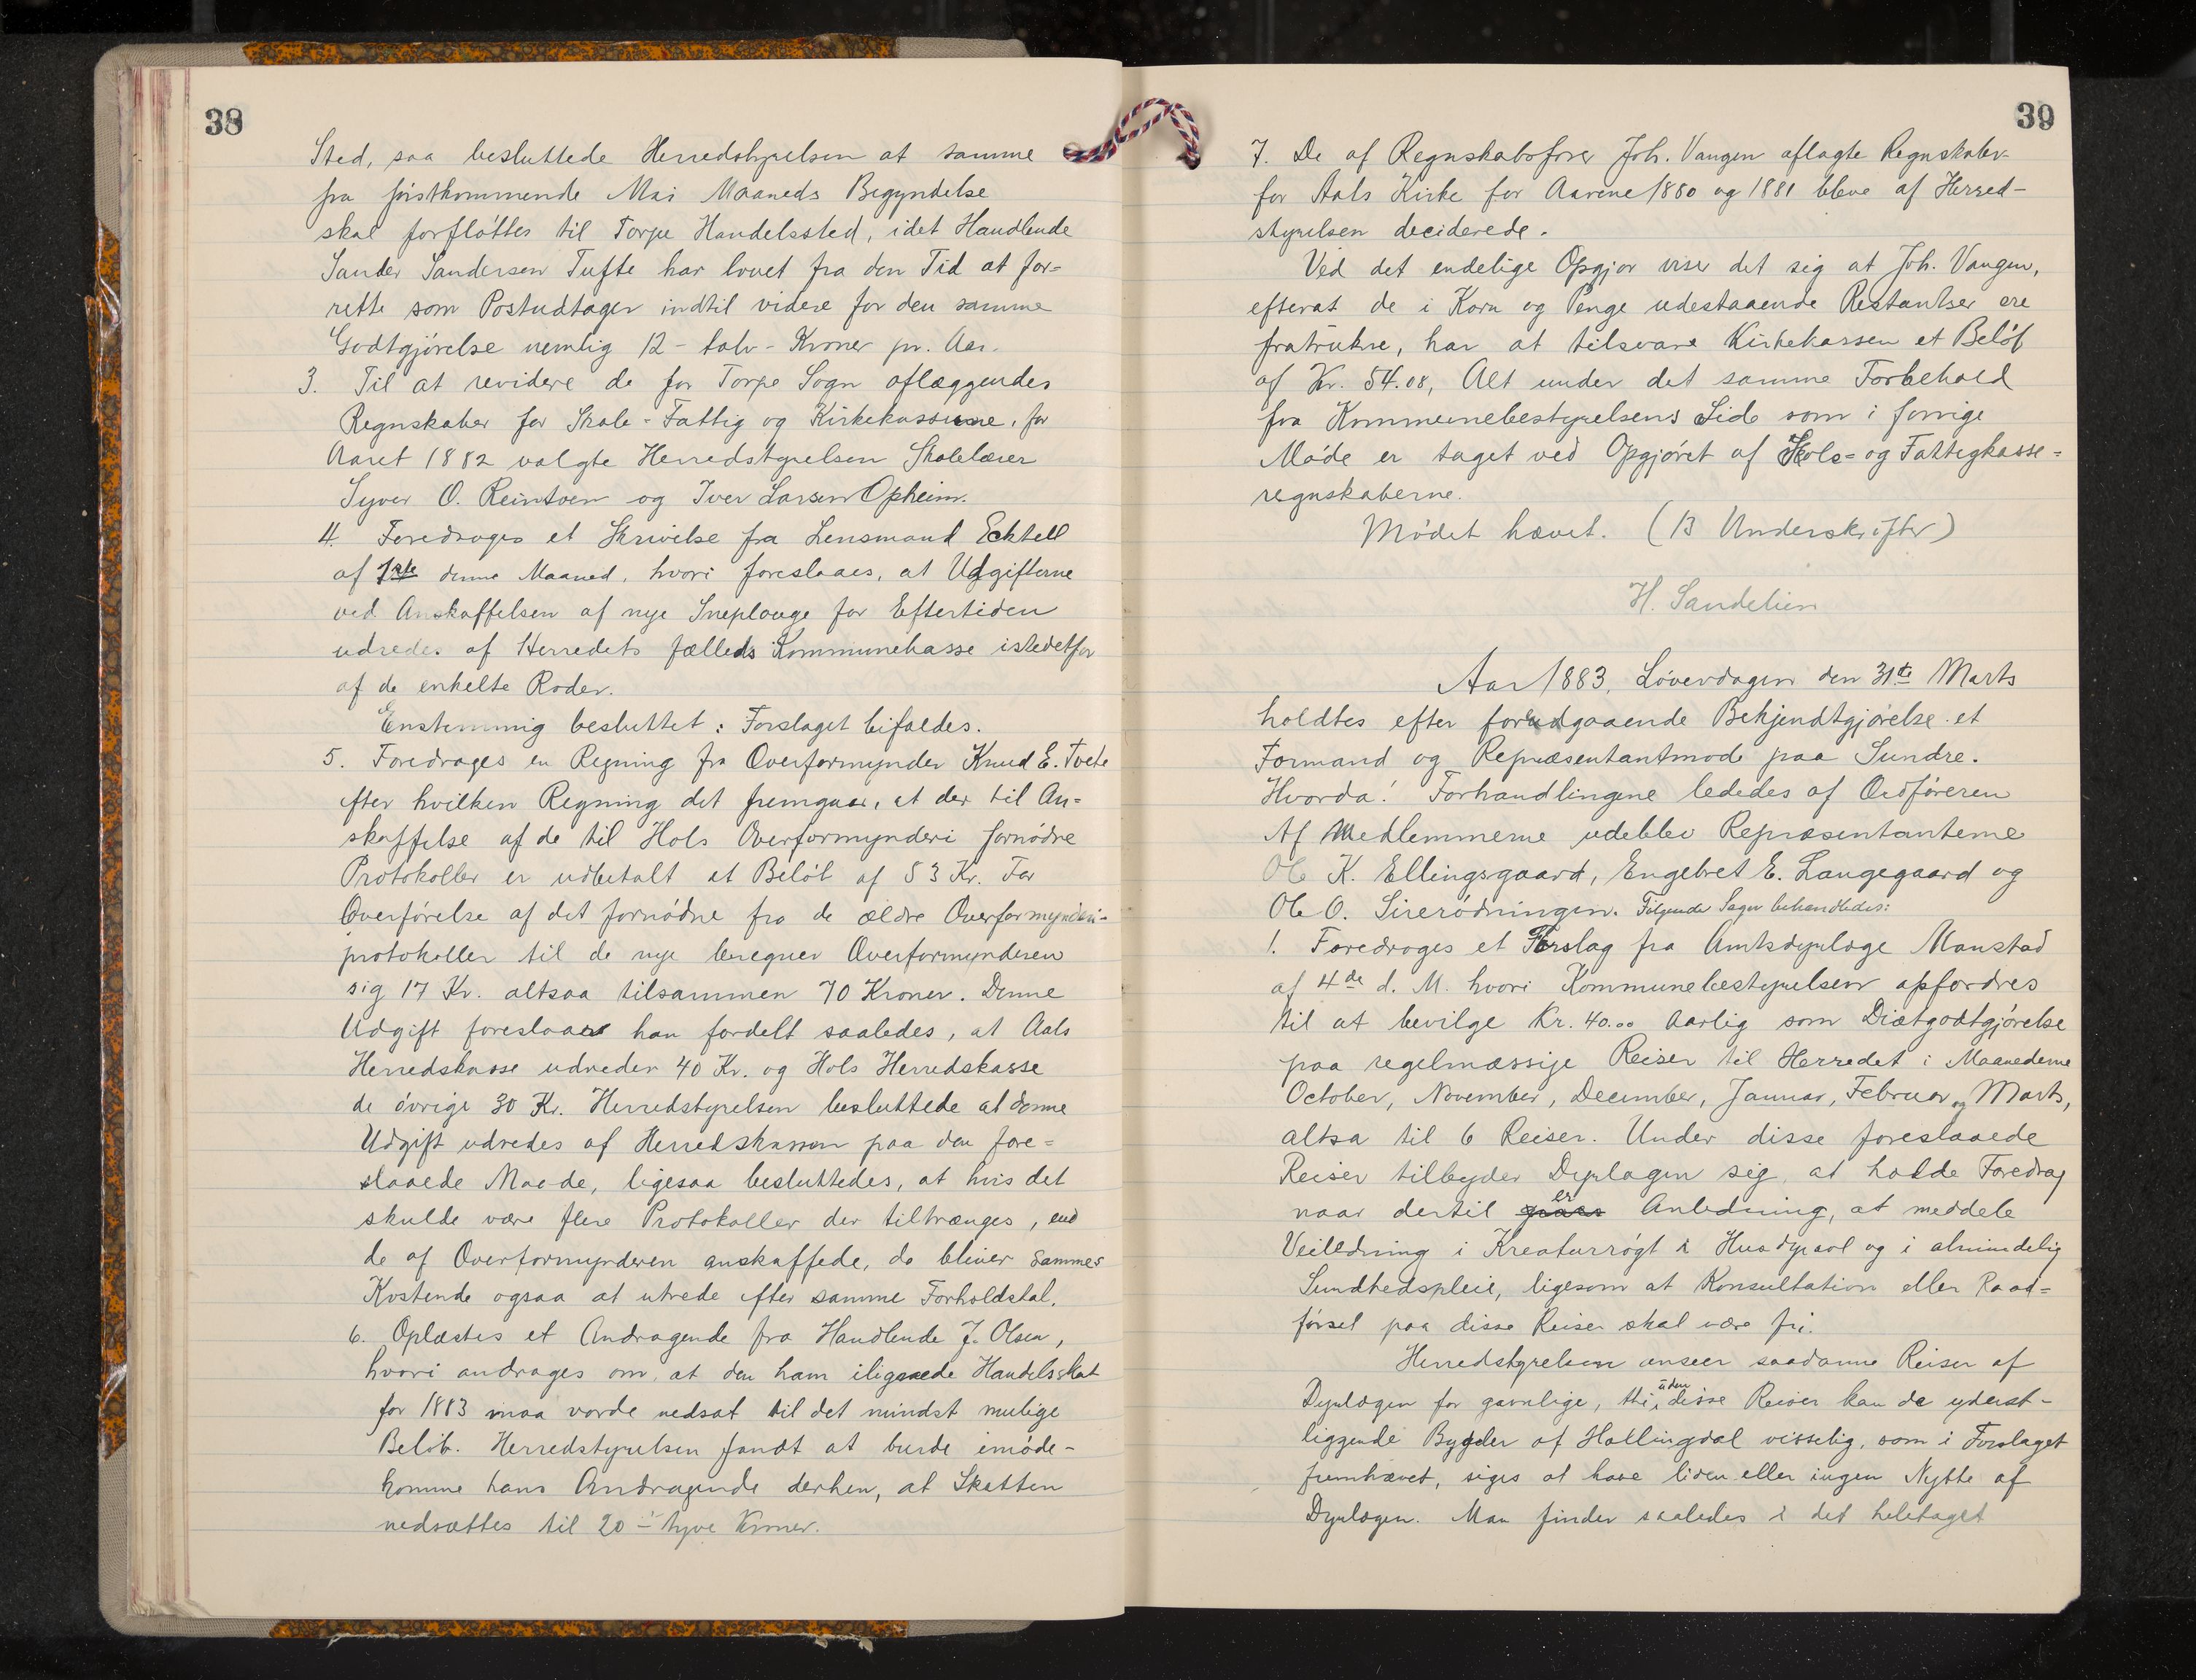 38
Sted, saa besluttede Herredstyrelsen at samme
fra førstkommende Mai Maaneds Begyndelse
skal forfløttes til Torpe Handelssted, idet Handlende
Sander Sandersen Tufte har lovet fra den Tid at for=
rette som Postudtager indtil videre for den samme
Godtgjørelse nemlig 12 - tolv - Kroner pr. Aar.
3. Til at revidere de for Torpe Sogn aflæggendes
Regnskaber for Skole- Fattig og Kirkekasserne, for
Aaret 1882 valgte Herredstyrelsen Skolelærer
Syver O. Reintoen og Iver Larsen Opheim.
4. Foredroges et Skrivelse fra Lensmand Ecktell
af 1ste denne Maaned, hvori foreslaaes, at Udgifterne
ved Anskaffelsen af nye Sneplouge for Eftertiden
udredes af Herredets fælleds Kommunekasse istedetfor
af de enkelte Roder.
Enstemmig besluttet: Forslaget bifaldes.
5. Foredrages en Regning fra Overformynder Knud E. Tvete
efter hvilken Regning det fremgaar, at der til An=
skaffelse af de til Hols Overformynderi fornødne
Protokoller er udbetalt et Beløb af 53 Kr. For
Overførelse af det fornødne fra de ældre Overformynderi-
protokoller til de nye beregner Overformynderen
sig 17 Kr. altsaa tilsammen 70 Kroner. Denne
Udgift foreslaaes han fordelt saaledes, at Aals
Herredskasse udreder 40 Kr. og Hols Herredskasse
de øvrige 30 Kr. Herredstyrelsen besluttede at denne
Udgift udredes af Herredskassen paa den fore=
slaaede Maade, ligesaa besluttedes, at hvis det
skulde være flere Protokoller der tiltrænges, end
de af Overformynderen anskaffede, da bliver sammes
Kostende ogsaa at utrede efter samme Forholdstal.
6. Oplæstes et Andragende fra Handlende J. Olsen,
hvori andrages om, at den ham ilignede Handelsskat
for 1883 maa vorde nedsat til det mindst mulige
Beløb. Herredstyrelsen fandt at burde imøde-
komme hans Andragende derhen, at Skatten
nedsættes til 20 - tyve Kroner.
39
7. De af Regnskabsfører Joh. Vangen aflagte Regnskaber
for Aals Kirke for Aarene 1880 og 1881 bleve af Herred-
styrelsen deciderede.
Ved det endelige Opgjør viser det sig at Joh. Vangen,
efterat de i Korn og Penge udestaaende Restantser ere
fratrukne, har at tilsvare Kirkekassen et Beløb
af Kr. 54.08, Alt under det samme Forbehold
fra Kommunebestyrelsens Side som i forrige
Møde er taget ved Opgjøret af Skole= og Fattigkasse=
regnskaberne.
Mødet hævet. (13 Underskrifter)
H. Sandelien
Aar 1883, Løverdagen den 31te Marts
holdtes efter forudgaaende Bekjendtgjørelse et
Formand og Repræsentantmøde paa Sundre.
Hvorda! Forhandlingene lededes af Ordføreren
Af Medlemmerne udeblev Repræsentanterne
Ole K. Ellingsgaard, Engebret E. Langegaard og
Ole O. Sirerødningen. Følgende Sager behandledes:
1. Foredroges et Forslag fra Amtsdyrlæge Manstad
af 4de d. M. hvori Kommunebestyrelsen opfordres
til at bevilge Kr. 40.00 aarlig som Diætgodtgjørelse
paa regelmæssige Reiser til Herredet i Maanederne
October, November, December, Januar, Februar og Marts,
altsa til 6 Reiser. Under disse foreslaaede
Reiser tilbyder Dyrlægen sig, at holde Foredrag
naar dertil er Anledning, at meddele
Veiledning i Kreaturrøgt i Husdyravl og i almindelig
Sundhedspleie, ligesom at Konsultation eller Raad=
førsel paa disse Reiser skal være fri.
Herredstyrelsen anseer saadanne Reiser af
Dyrlægen for gavnlige, thi uden disse Reiser kan de yderst-
liggende Bygder af Hallingdal visselig, som i Forslaget
fremhævet, siges at have liden eller ingen Nytte af
Dyrlægen. Man finder saaledes i det heletaget